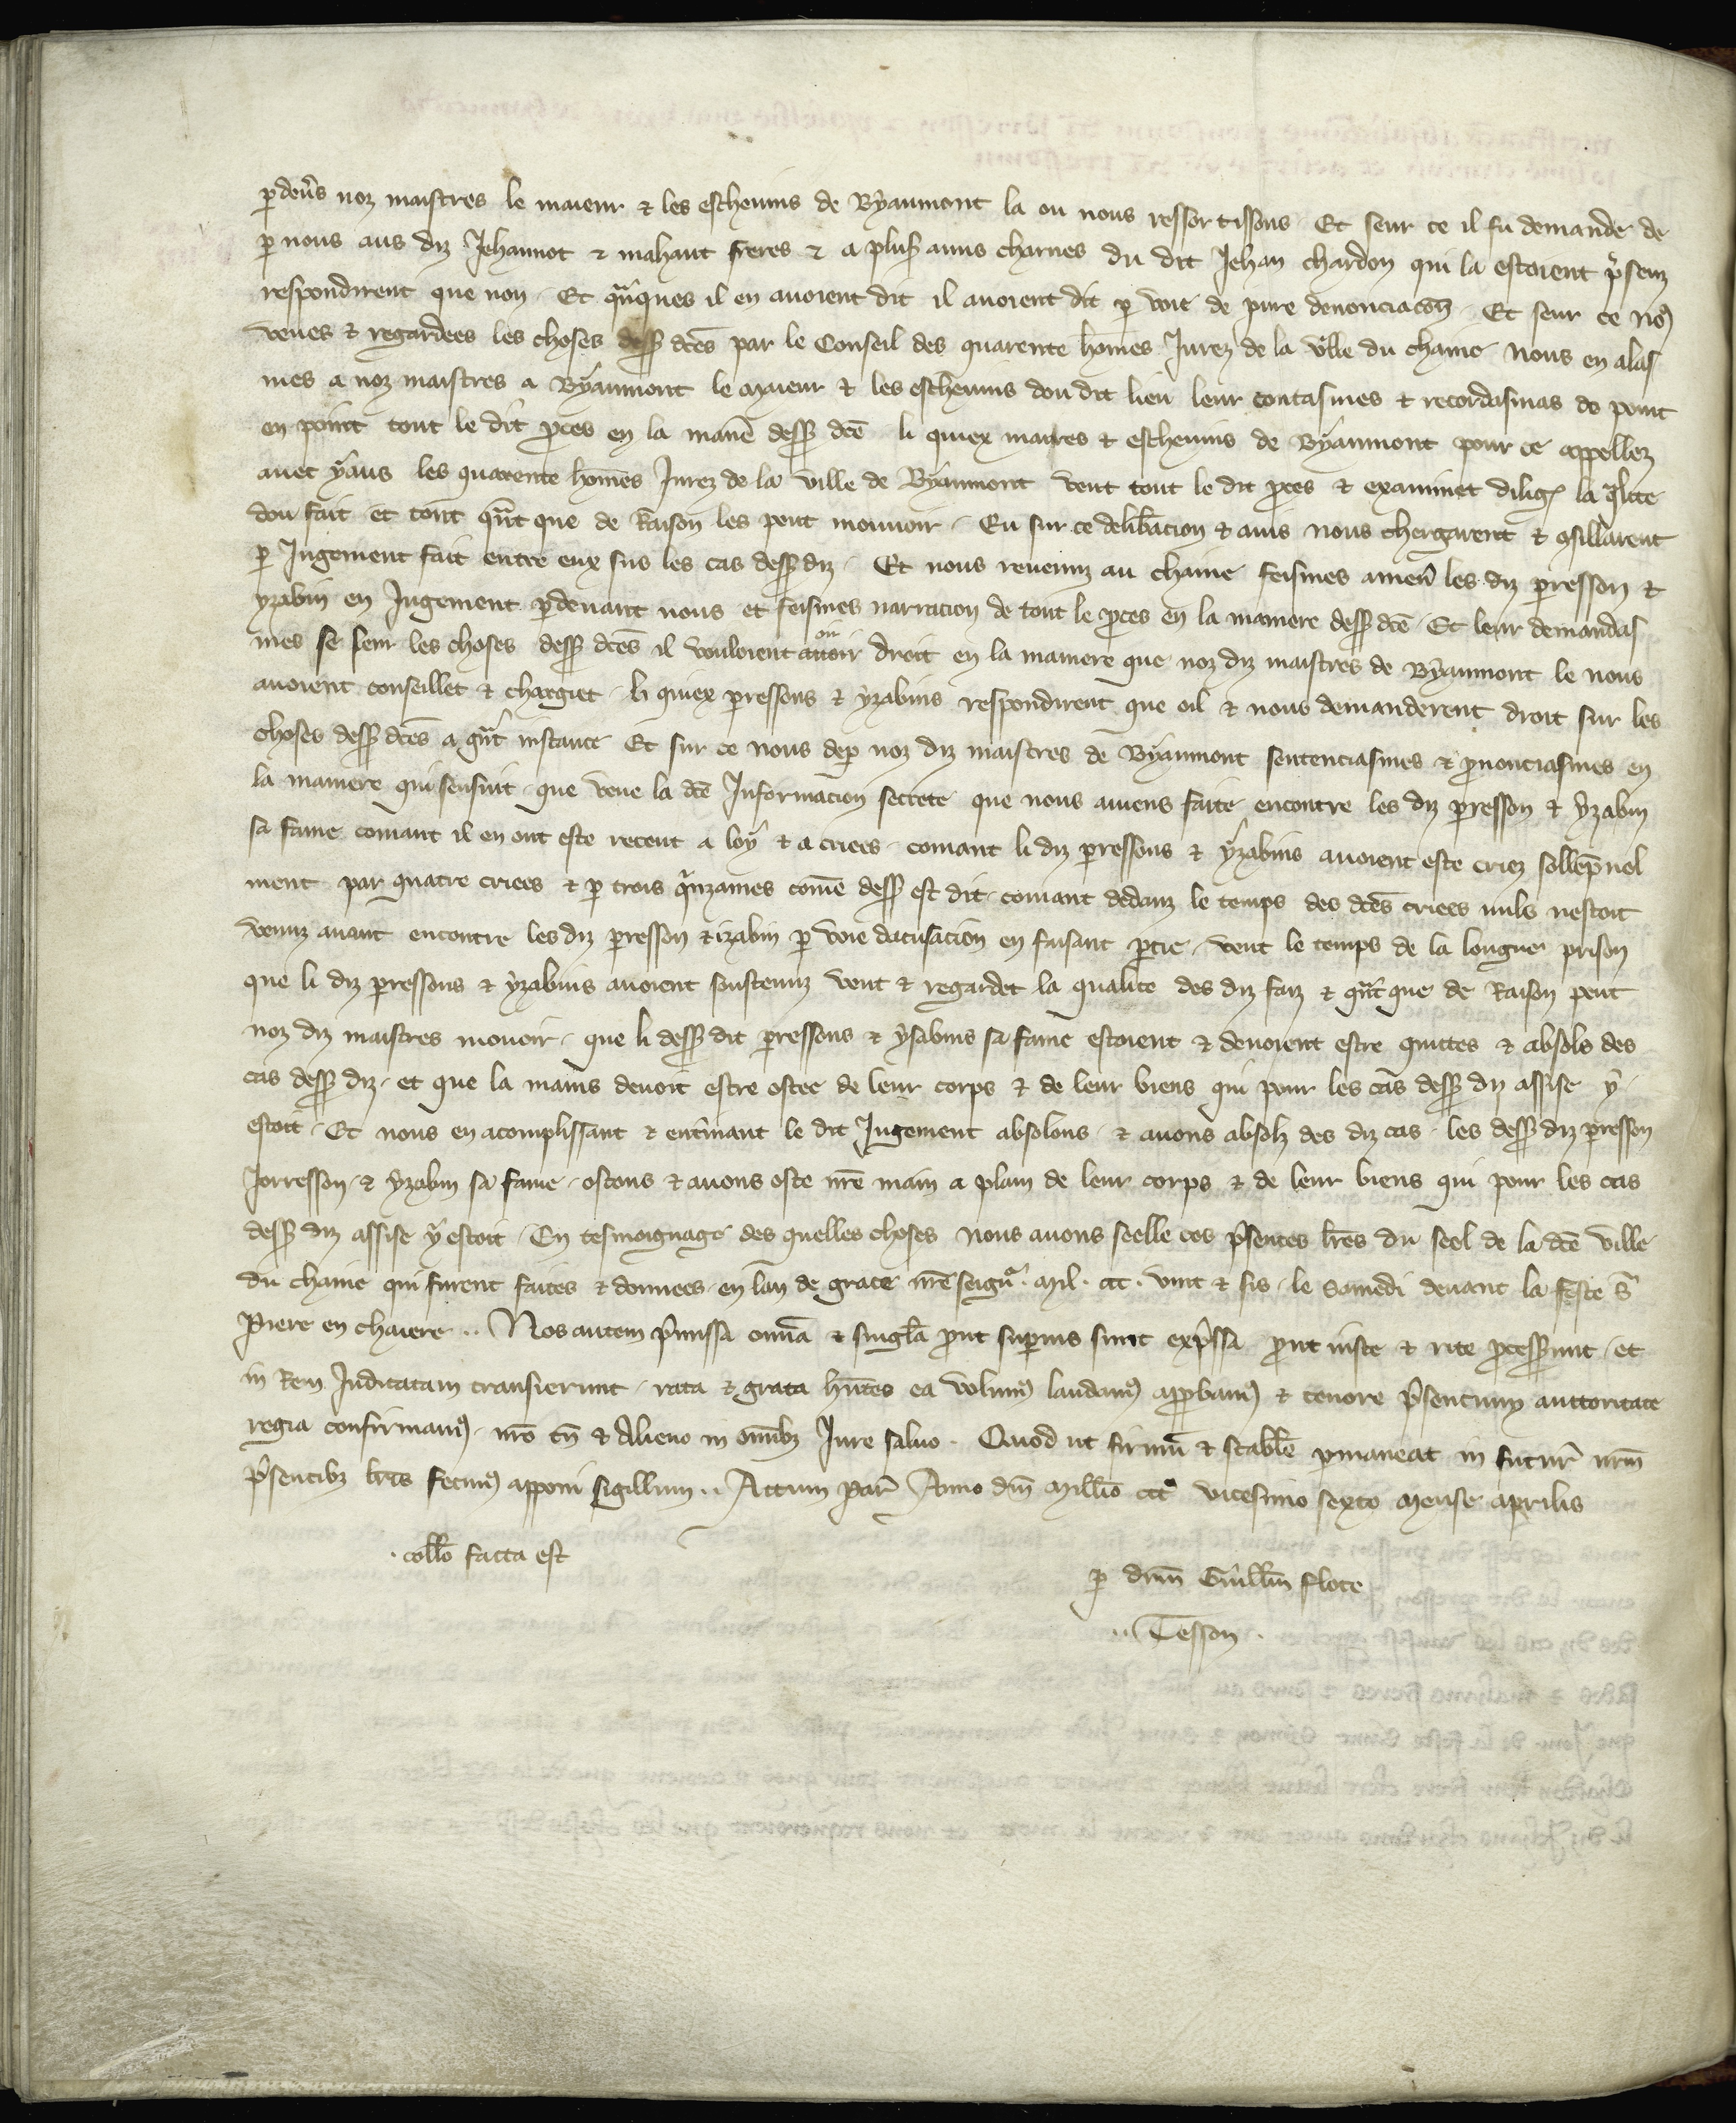 p devs noz maistres le maieur & les escheuins de Byaumont la ou nous ressortissons Et seur ce il fu demande de
p nous aus diz Jehannot & mahaut freres & a plus amis charnes du dit Jehan chardon qui la estoient psenz
respondirent que non. Et qnques il en auoient dit il auoient dit p voie de pure denonciacon. Et seur ce nos
veues & regardees les choses dess dces par le Conseil des quarente homes Jurez de la ville du chaine nous en alas
mes a noz maistres a Byaumont le maieur & les escheuins dou dit lieu leur contasmes & recordasmas de point
en point tout le dit pces en la manie dess dce li quiex maires & escheuins de Byaumont pour ce appellez
auec yaus les quarente homes Jurez de la ville de Byaumont veut tout le dit pces & examinet dilig la qlite
dou fait et tout qnt que de Raison les peut mouuoir. Eu sur ce delibacion & auis nous chergarent & 9sillarent
p Jugement fait entre eux sus les cas dess diz. Et nous reuenuz au chaine feismes amen les diz presson &
yzabin en Jugement pdeuant nous et feismes narracion de tout le pces en la maniere dess dce. Et leur demandas
mes se seur les choses dess dces il vouloient auoir oir droit en la maniere que noz diz maistres de Byaumont le nous
auoient conseillet & chargiet. li quiex pressons & yzabins respondirent que oil & nous demanderent droit sur les
choses dess dces a gnt instance Et sur ce nous dep noz diz maistres de Byaumont sentenciasmes & pnonciasmes en
la maniere qui sensuit. que veue la dce Informacion secrete que nous auiens faite encontre les diz presson & yzabin
sa fame comant il en ont este receut a loy & a criees. comant li diz pressons & yzabins auoient este criez sollepnel
ment par quatre criees & p trois qnzaines come dess est dit. comant dedanz le temps des dces criees nuls nestoit
venuz auant encontre les diz presson & izabin p voie dacusacion en faisant ptie. veut le temps de la longue prison
que li diz pressons & yzabins auoient soustenuz veut & regardet la qualite des diz faiz & qnt que de Raison peut
noz diz maistres mouoir. que li dess dit pressons & ysabins sa fame estoient & deuoient estre quittes & absols des
cas dess diz. et que la mains deuoit estre ostee de leur corps & de leur biens qui pour les cas dess diz assise y
estoit. Et nous en acomplissant & entinant le dit Jugement absolons & auons absolz des diz cas. les dess diz presson
Jorresson & yzabin sa fame. ostons & auons oste nre main a plain de leur corps & de leur biens qui pour les cas
dess diz assise y estoit. En tesmoignage des quelles choses nous auons seelle ces psentes lres du seel de la dce ville
du chaine qui furent faites & donnees. en lan de grace nre seignr. Mil. ccc. vint & sis. le samedi deuant la feste s
Piere en chaiere. Nos autem pmissa omia & singla put supius sunt expssa put iuste & rite pcesserunt. et
in Rem Judicatam transierunt. rata & grata hntes ea volum laudam appbam & tenore psentium auctoritate
regia confirmam. nro tn & Alieno in omibz Jure saluo. Quod ut firmu & stabile pmaneat in futur nrm
psentibz lris fecim apponi sigillum. Actum par Anno dni Millio ccc vicesimo sexto Mense Aprilis
collo facta est
p dnm Guillm flote
Tesson